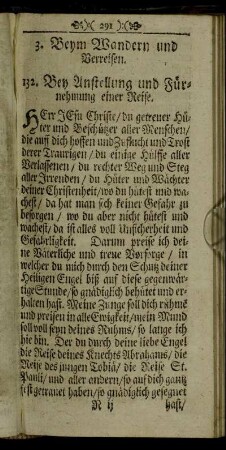 291
3. Beym Wandern und
Verreisen.
132. Bey Anstellung und Für-
nehmung einer Reise.
HErr JEsu Christe/ du getreuer Hü-
ter und Beschützer aller Menschen/
die auff dich hoffen und Zuflucht und Trost
derer Traurigen/ du einige Hülffe aller
Verlassenen/ du rechter Weg und Steg
aller Irrenden/ du Hüter und Wächter
deiner Christenheit/ wo du hütest und wa-
chest/ da hat man sich keiner Gefahr zu
besorgen/ wo du aber nicht hütest und
wachest/ da ist alles voll Unsicherheit und
Gefährligkeit. Darum preise ich dei-
ne Väterliche und treue Vorsorge/ in
welcher du mich durch den Schutz deiner
Heiligen Engel biß auf diese gegenwär-
tige Stunde/ so gnädiglich behütet und er-
halten hast. Meine Zunge soll dich rühmē
und preisen in alle Ewigkeit/ mein Mund
soll voll seyn deines Ruhms/ so lange ich
hie bin. Der du durch deine liebe Engel
die Reise deines Knechts Abrahams/ die
Reise des jungen Tobiä/ die Reise St.
Pauli/ und aller andern/ so auf dich gantz
fest getrauet haben/ so gnädiglich gesegnet
N ij hast/